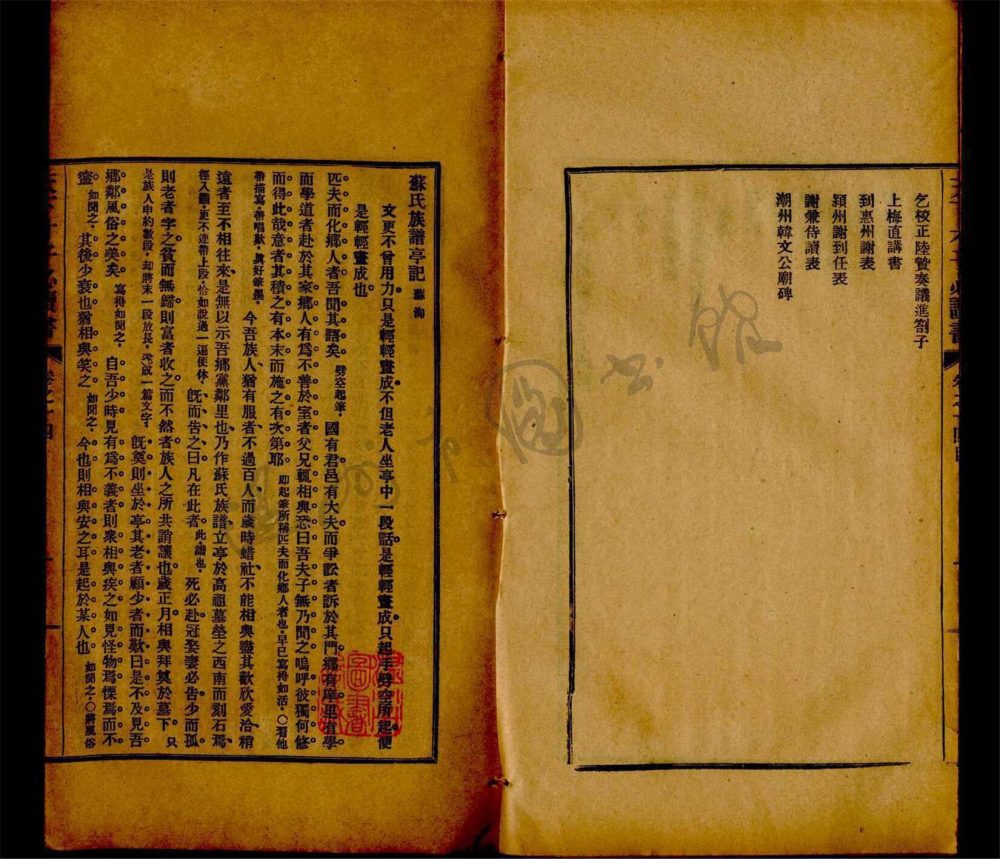 乞校正陸贄奏議進劄子
上梅直講書
到惠州謝表
潁州謝到任表
謝兼侍讀表
潮州韓文公廟碑
蘇氏族譜亭記 蘇洵
文更不曾用力只是輕輕畫成不但老人坐亭中一段話是輕輕畫成只起手劈空所起便
是輕輕畫成也
匹夫而化鄉人者吾聞其語矣 劈空起筆 國有君邑有大夫而爭訟者訴於其門鄉有庠里有學
而學道者赴於其家鄉人有爲不善於室者父兄輒相與恐曰吾夫子無乃聞之嗚呼彼獨何修
而得此哉意者其積之有本末而施之有次第耶 即起筆所稱匹夫而化鄉人者也早已寫得如活○看他
帶描寫帶唱歎眞好筆墨 今吾族人猶有服者不過百人而歲時蜡社不能相與盡其歡欣愛洽稍
遠者至不相往來是無以示吾鄉黨鄰里也乃作蘇氏族譜立亭於高祖墓塋之西南而刻石焉
徑入題更不連帶上段恰如說過一遍便休 旣而告之曰凡在此者 此譜也 死必赴冠娶妻必告少而孤
則老者字之貧而無歸則富者收之而不然者族人之所共誚讓也歲正月相與拜奠於墓下 只
是族人申約數段却將末一段放長 成一篇文字 旣奠則坐於亭其老者顧少者而歎曰是不及見吾
鄉鄰風俗之美矣 寫得如聞之 自吾少時見有爲不義者則衆相與疾之如見怪物焉慄焉而不
寧 如聞之 其後少衰也猶相與笑之 如聞之 今也則相與安之耳是起於某人也 如聞之○將風俗